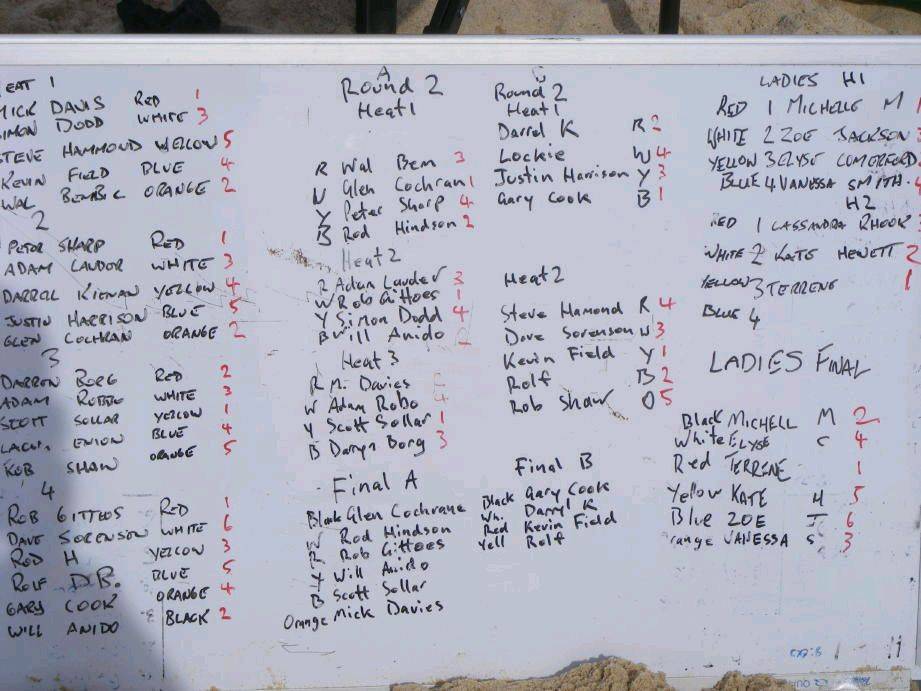 EAT 1
MICK DAVIS RED 1
SIMON DODD WHITE 3
STEVE HAMMOND YELLOW 5
KEVIN FIELD BLUE 4
WAL BEMBIC ORANGE 2
2
PETER SHARP RED 1
ADAM LAUDER WHITE 3
DARRELL KIENAN YELLOW 4
JUSTIN HARRISON BLUE 5
GLEN COCHRAN ORANGE 2
3
DARREN BORG RED 2
ADAM ROBBO WHITE 3
SCOTT SOLLAR YELLOW 1
ENION BLUE 4
ROB SHAW ORANGE 5
4
ROB GITTOES RED 1
DAVE SORENSON WHITE 6
ROD H YELLOW 3
ROLF D.B. BLUE 5
GARY COOK ORANGE 4
WILL ANIDO BLACK 2
A
Round 2
Heat 1
R Wal Bem 3
W Glen Cochran 1
Y Peter Sharp 4
B Rod Hindson 2
Heat 2
R Adam Lauder 3
W Rob Gittoes 1
Y Simon Dodd 4
B Will Anido 2
Heat 3
R M. Davies
W Adam Robo 4
Y Scott Sollar 1
B Daryn Borg 3
Final A
Black Glen Cochrane
W Rod Hindson
R Rob Gittoes
Y Will Anido
B Scott Sollar
Orange Mick Davies
Round 2
Heat 1
Darrel K R 2
Lockie W 4
Justin Harrison Y 3
Gary Cook B 1
Heat 2
Steve Hamond R 4
Dave Sorenson W 3
Kevin Field Y 1
Rolf B 2
Rob Shaw O 5
Final B
Black Gary Cook
Wh. Darryl K
Red Kevin Field
Yell Rolf
LADIES H1
RED 1 MICHELLE M 1
WHITE 2 ZOE JACKSON
YELLOW 3 ELYSE COMERFORD
BLUE 4 VANESSA SMITH 4
H2
RED 1 CASSANDRA RHOOK
WHITE 2 KATE HEWETT 2
YELLOW 3 TERRENE 1
BLUE 4
LADIES FINAL
Black MICHELL M 2
White ELYSE C 4
Red TERRENE 1
Yellow KATE H 5
Blue ZOE J 6
range VANESSA S 3